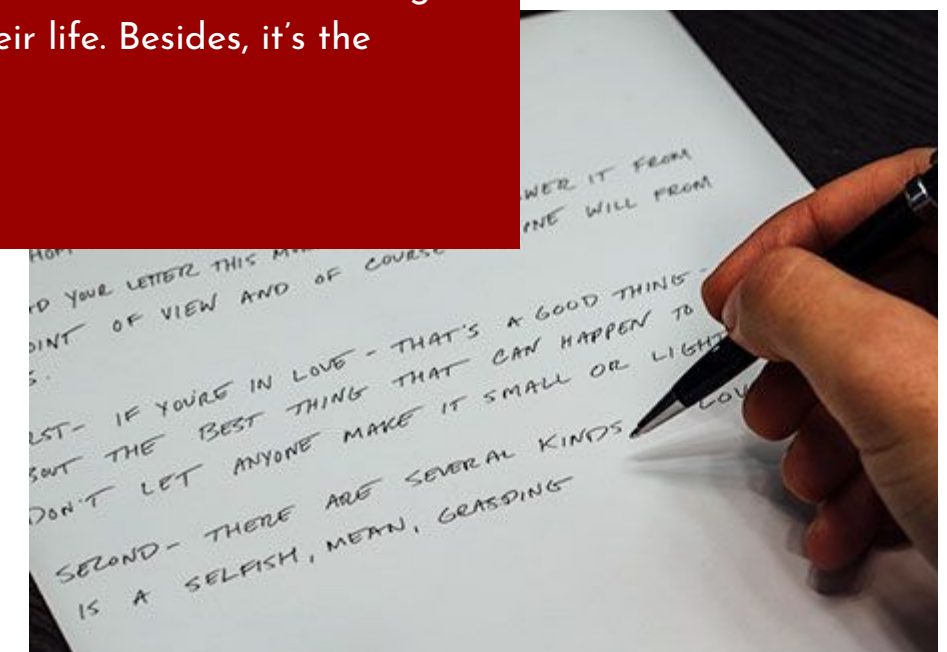 eir life. Besides, it's the
WER IT FROM
ONE WILL FROM
D YOUR LETTER THIS
OINT OF VIEW AND OF COURSE
S.
RST- IF YOU'RE IN LOVE - THAT'S A GOOD THING -
BOUT THE BEST THING THAT CAN HAPPEN TO
DON'T LET ANYONE MAKE IT SMALL OR LIGHT
SECOND- THERE ARE SEVERAL KINDS LOV
IS A SELFISH, MEAN, GRASPING